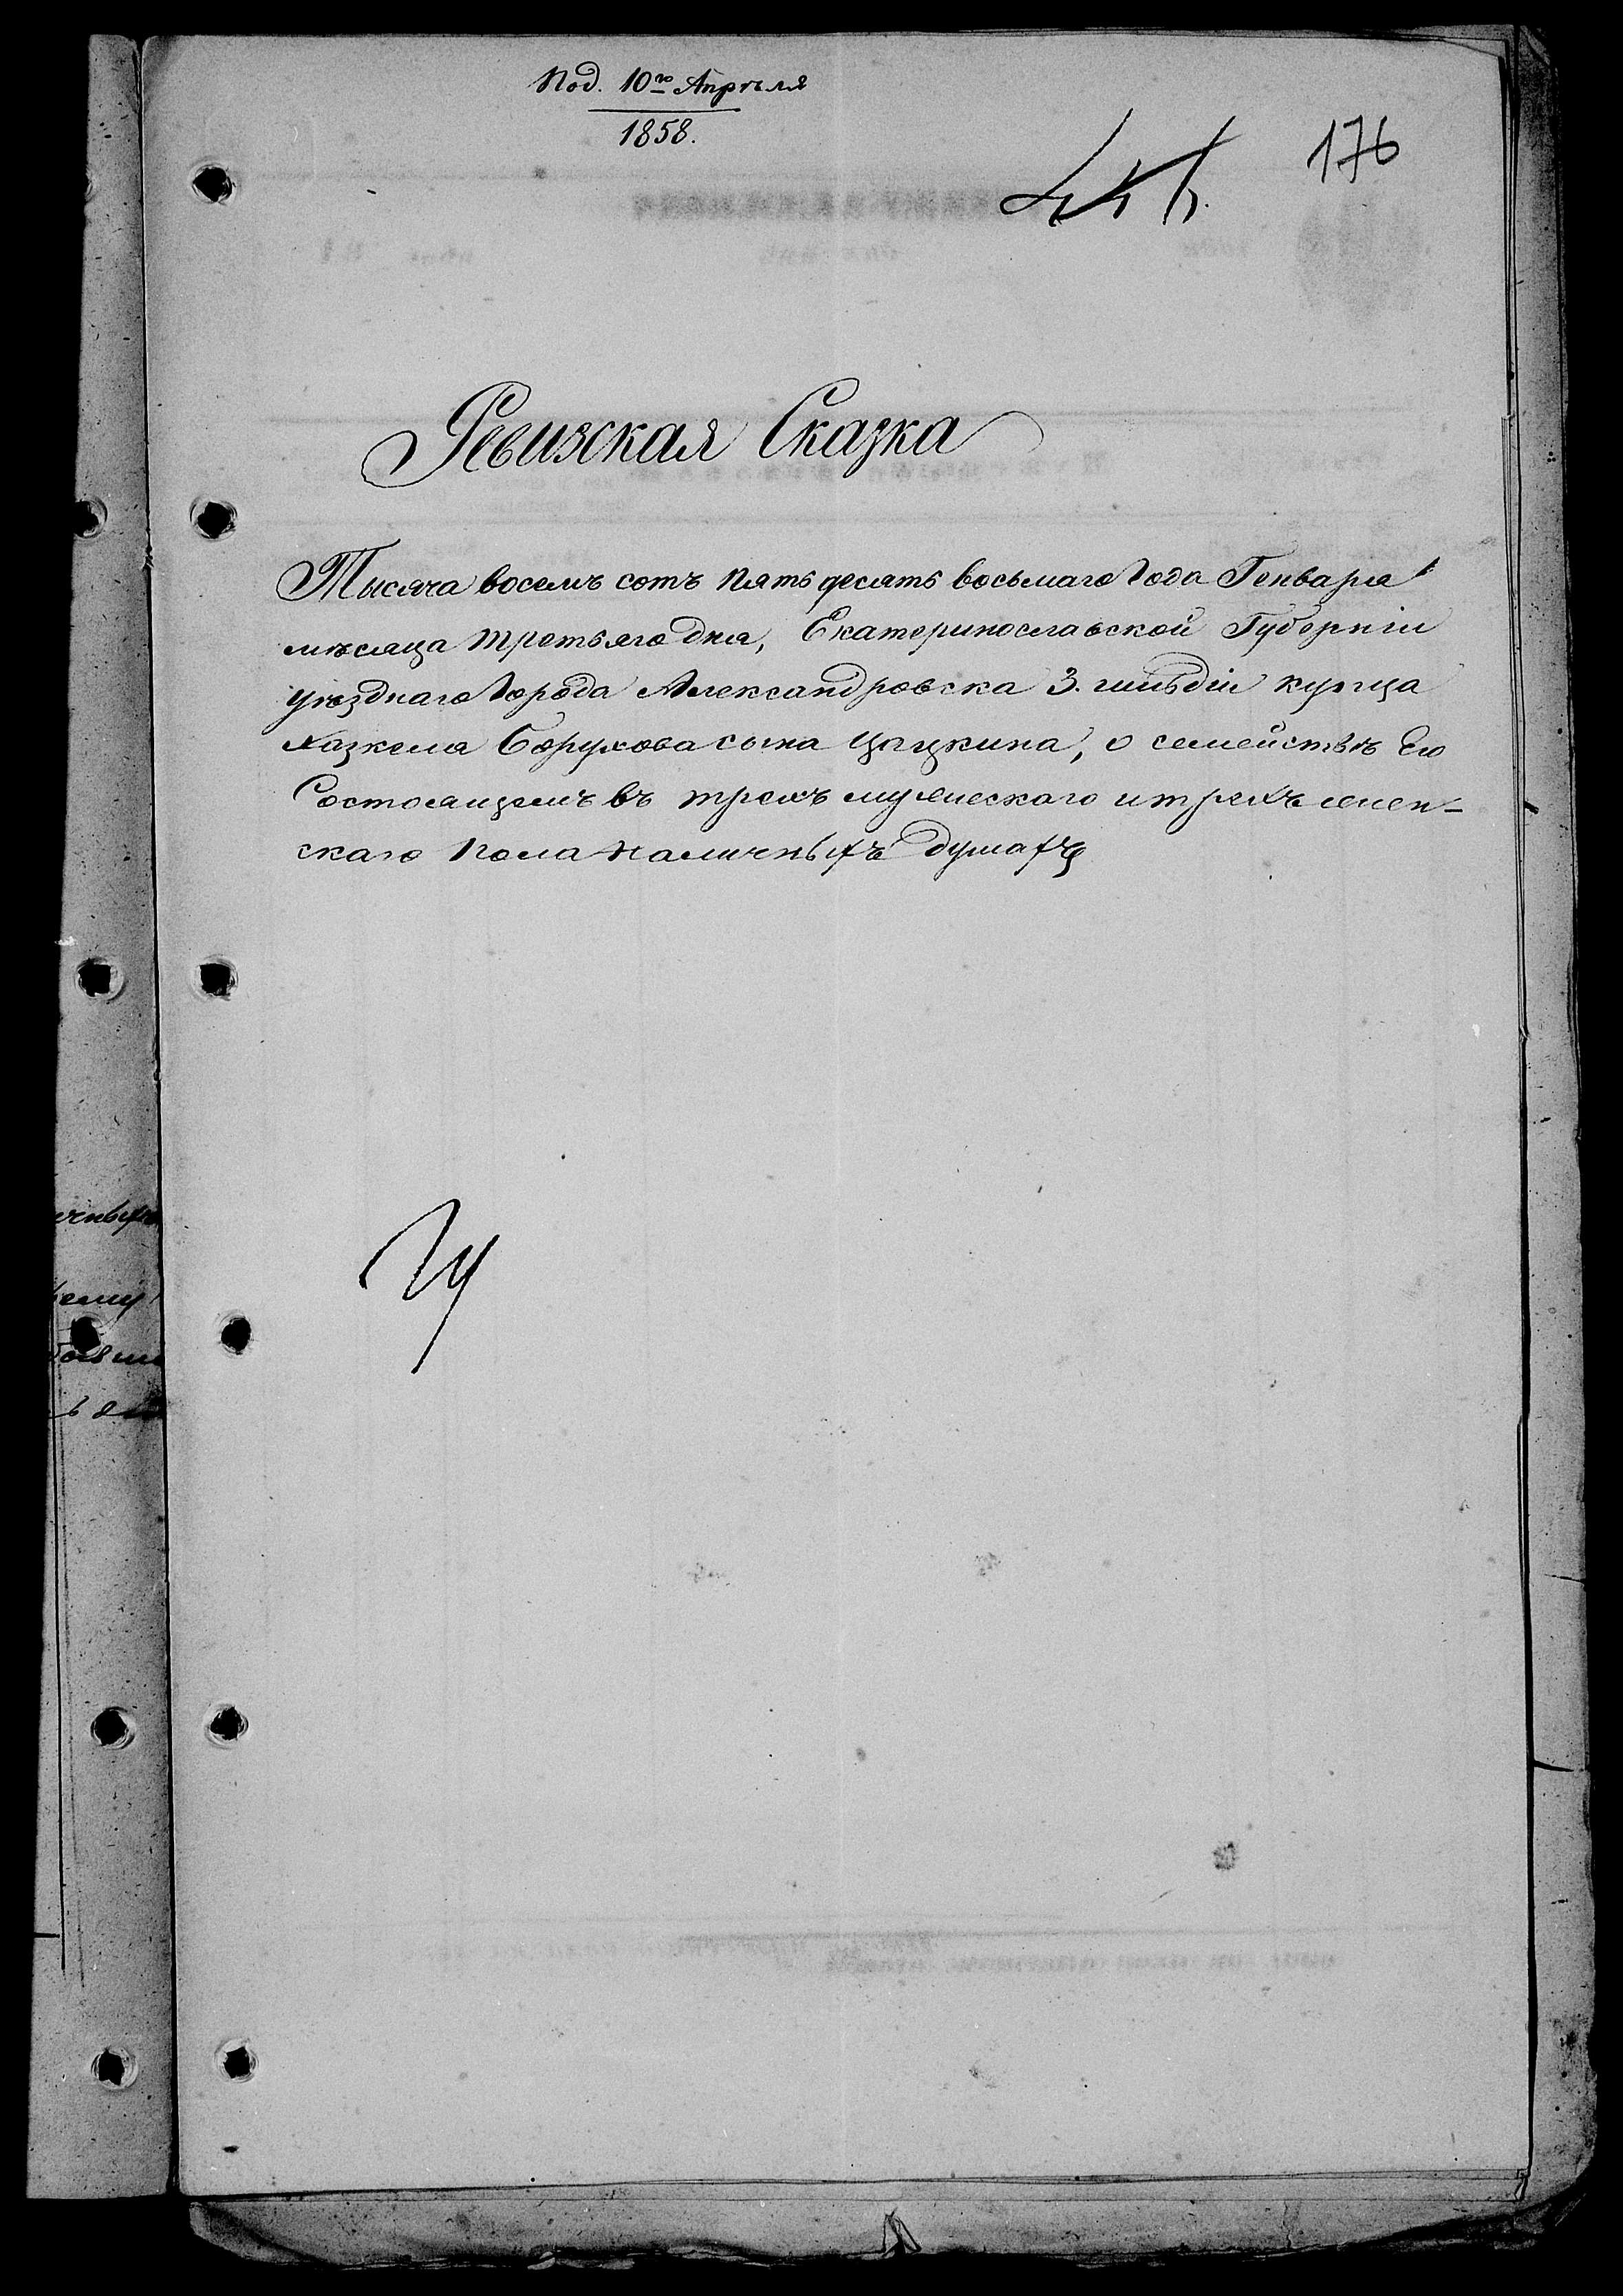 Под. 10го Апрѣля
1858.
176
Ревизская Сказка
Тысяча восемъ сотъ пять десятъ восьмаго Года Генваря
мѣсяца третьяго дня, Екатеринославской Губерніи
уѣзднаго Города Александровска 3. гильдіи купца
Хазкеля Борухова сына Цацкина, о семействѣ Его
Состоящемъ въ трехъ мужескаго и трехъ женс-
скаго пола наличныхъ душахъ